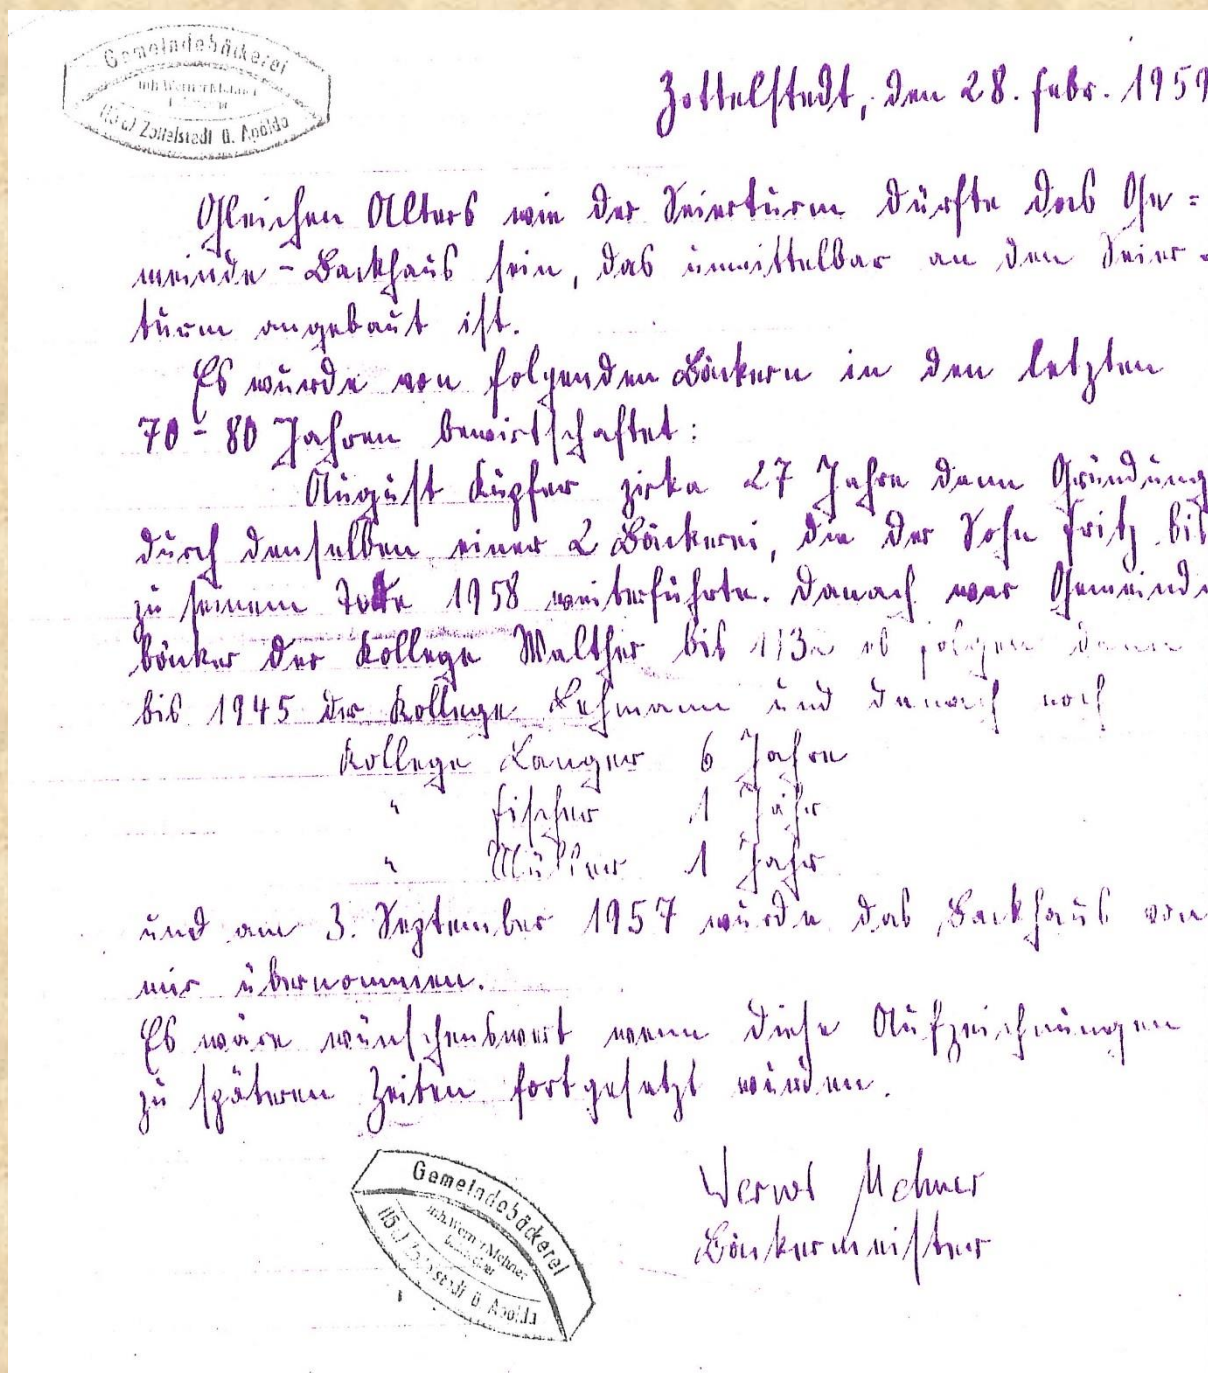 Gemeindebäckerei
Inh. Werner Mehner
(15c) Zottelstedt ü. Apolda
Zottelstedt, den 28. Febr. 1959
Gleichen Alters wie der Seierturm dürfte das Ge=
meinde-Backhaus sein, das unmittelbar an den Seier-
turm angebaut ist.
Es wurde von folgenden Bäckern in den letzten
70-80 Jahren bewirtschaftet:
August Küpfer zirka 27 Jahre dann Gründung
durch denselben einer 2 Bäckerei, die der Sohn Fritz bis
zu seinem Tode 1958 weiterführte. Danach war Gemeinde
bäcker der Kollege Walther bis es folgen dann
bis 1945 der Kollege Lehmann und danach noch
Kollege Langer 6 Jahre
" Fischer 1 Jahr
" Müller 1 Jahr
und am 3. September 1957 wurde das Backhaus von
mir übernommen.
Es wäre wünschenswert wenn diese Aufzeichnungen
zu späteren Zeiten fortgesetzt würden.
Werner Mehner
Bäckermeister
Gemeindebäckerei
Inh. Werner Mehner
(15c) Zottelstedt ü. Apolda